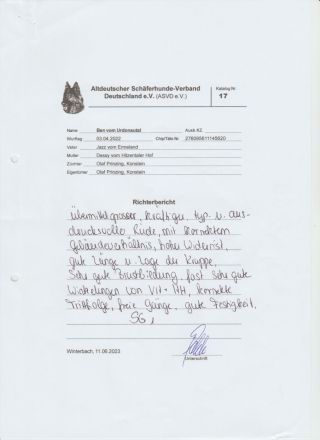 Altdeutscher Schäferhunde-Verband
Deutschland e.V. (ASVD e.V.)
Katalog Nr.
17
Name Ben vom Urdonautal Ausk KZ
Wurftag 03.04.2022 Chip/Täto Nr.
Vater Jazz vom Ermeland
Mutter Dassy vom Hitzentaler Hof
Züchter Olaf Prinzing, Konstein
Eigentümer Olaf Prinzing, Konstein
Richterbericht
Übermittelgrosser, kräftiger, typ. u. aus-
drucksvoller Rüde, mit korrektem
Gebäudeverhältnis, hoher Widerrist,
gute Länge u. Lage der Kruppe,
Sehr gute Brustbildung, fast sehr gute
Winkelungen von VH + HH, korrekte
Trittfolge, freie Gänge, gute Festigkeit.
SG 1
Winterbach, 11.06.2023
Unterschrift